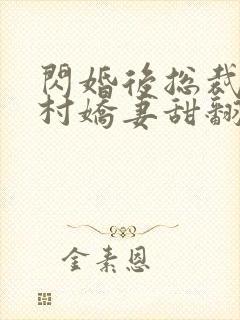 閃婚後總裁
村嬌妻甜翻
金素恩